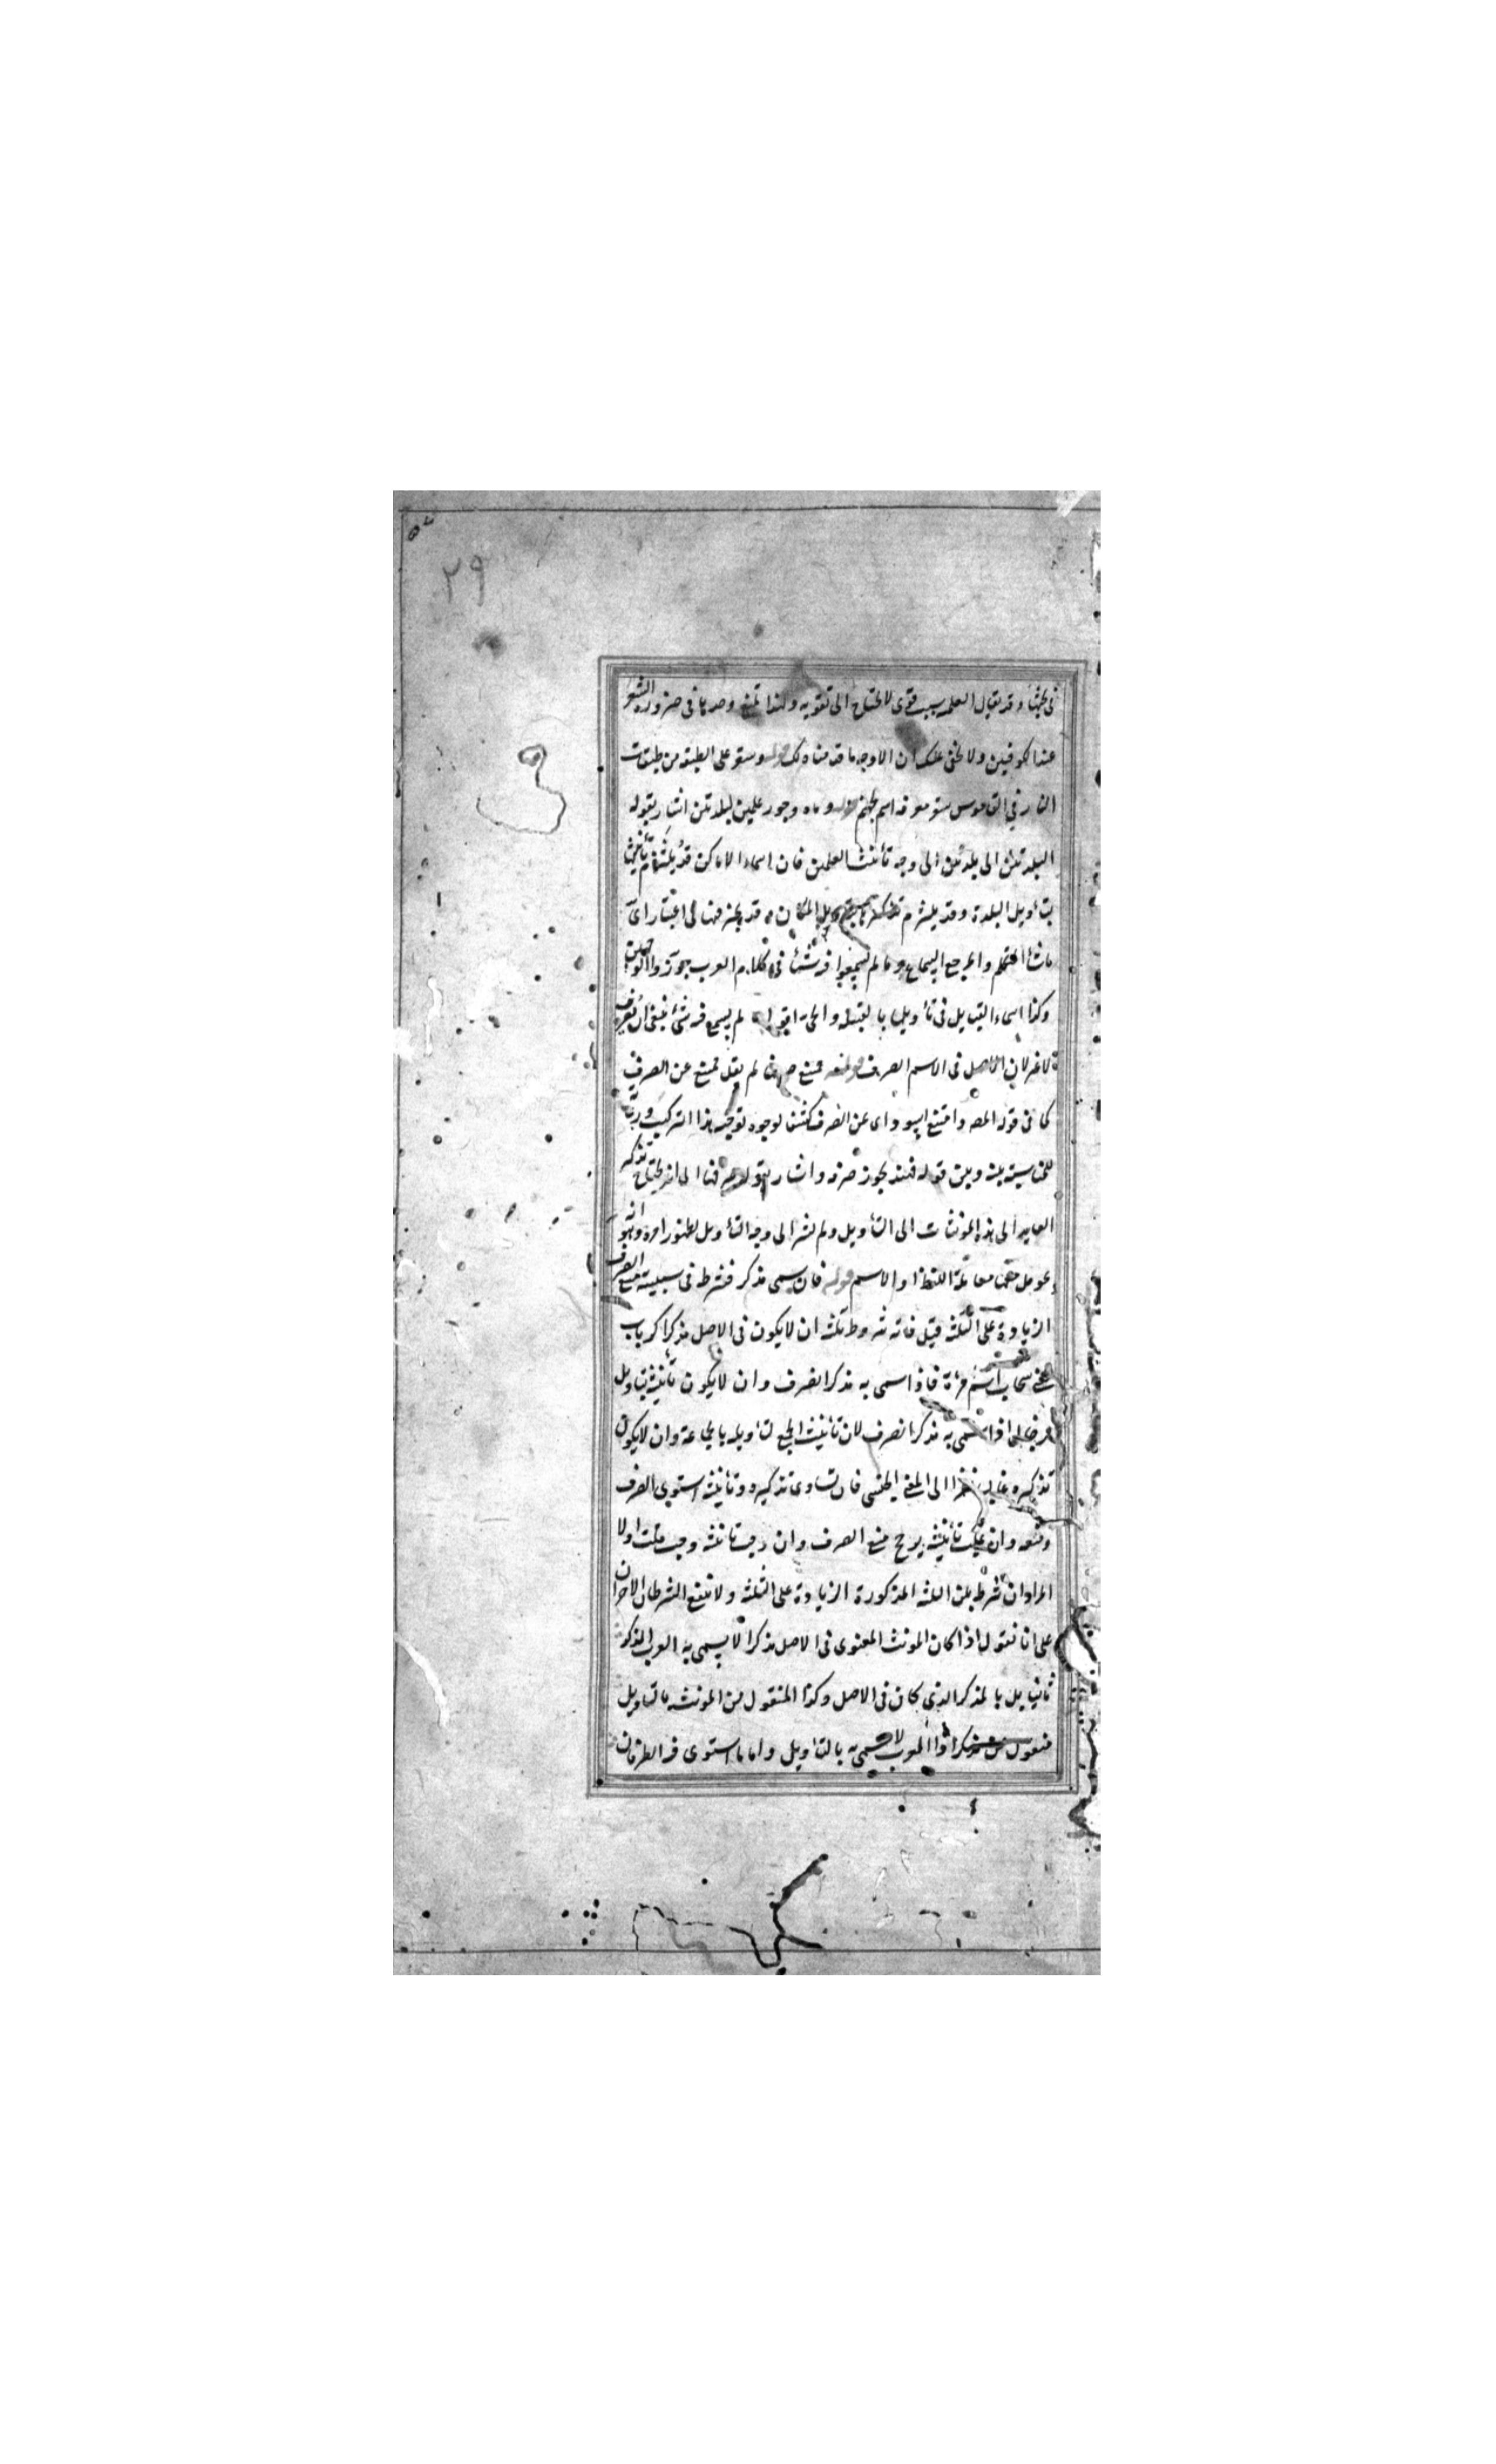 ٢٩
وقد يقال العلمية سبب قوى لا يحتاج الى تقوية ولهذا تمنع وحدها فى ضرورة الشعر
عند الكوفيين ولا يخفى عليك ان الاوجه ما قدمناه لك قوله وسقر على لطبقة من طبقات
النار فى القاموس سقر معرفة اسم لجهنم قوله وماه وجور علمين لبلدتين اشار بقوله
البلدتين الى بلدتين الى وجه تأنيث العلمين فان اسماء الاماكن قد يلتزم تأنيثها
بتأويل البلدة وقد يلتزم تذكيرها بتأويل المكان وقد يجوز فيها الاعتباران
ما شاء المتكلم والمرجع السماع وما لم يسمعوا فيه شيئا فى كلام العرب جوزوا الوجهين
وكذا اسماء القبايل فى تأويلها بالقبيلة والحى اقول لم يسمع فيه شئ ينبغى ان يصرف
لا غير لان الاصل فى الاسم الصرف قوله ممتنع صرفها لم يقل ممتنع عن الصرف
كما فى قوله المصه وامتنع اسود واى عن الصرف لوجوه توجيه هذا التركيب
للمناسبة بينه وبين قوله فهند يجوز صرفه واشار بقوله صرفها الى انه يحتاج تذكير
العايد الى هذه المونثات الى التأويل ولم يشر الى وجه التأويل لظهور امره وهو انه
عومل معها معاملة اللفظ او الاسم قوله فان سمى به مذكر فشرطه فى سببية منع الصرف
الزيادة على الثلثة قيل فاته شروط ثلثة ان لا يكون فى الاصل مذكرا كرباب
بمعنى سحاب اسم امرأة فاذا سمى به مذكر انصرف وان لا يكون تأنيثه بتأويل
كرجال اذا سمى به مذكر انصرف لان تأنيث الجمع لتأويله بالجماعة وان لا يكون
تذكيره غالبا نظرا الى المعنى الجنسى فان تساوى تذكيره وتأنيثه استوى الصرف
ومنعه وان غلب تأنيثه يرجح منع الصرف وان وجب تأنيثه وجب قلت اولا
المراد ان شرط بين الثلثة المذكورة الزيادة على الثلثة ولا تمنع الشرطان الاخران
على انا نقول اذا كان المونث المعنوى فى الاصل مذكرا لا يسمى به العرب المذكر
بل بالمذكر الذى كان فى الاصل وكذا المنقول من المونث بالتأويل
منقول اذا العرب لا يسمى به بالتأويل واما ما استوى فيه الطرفان